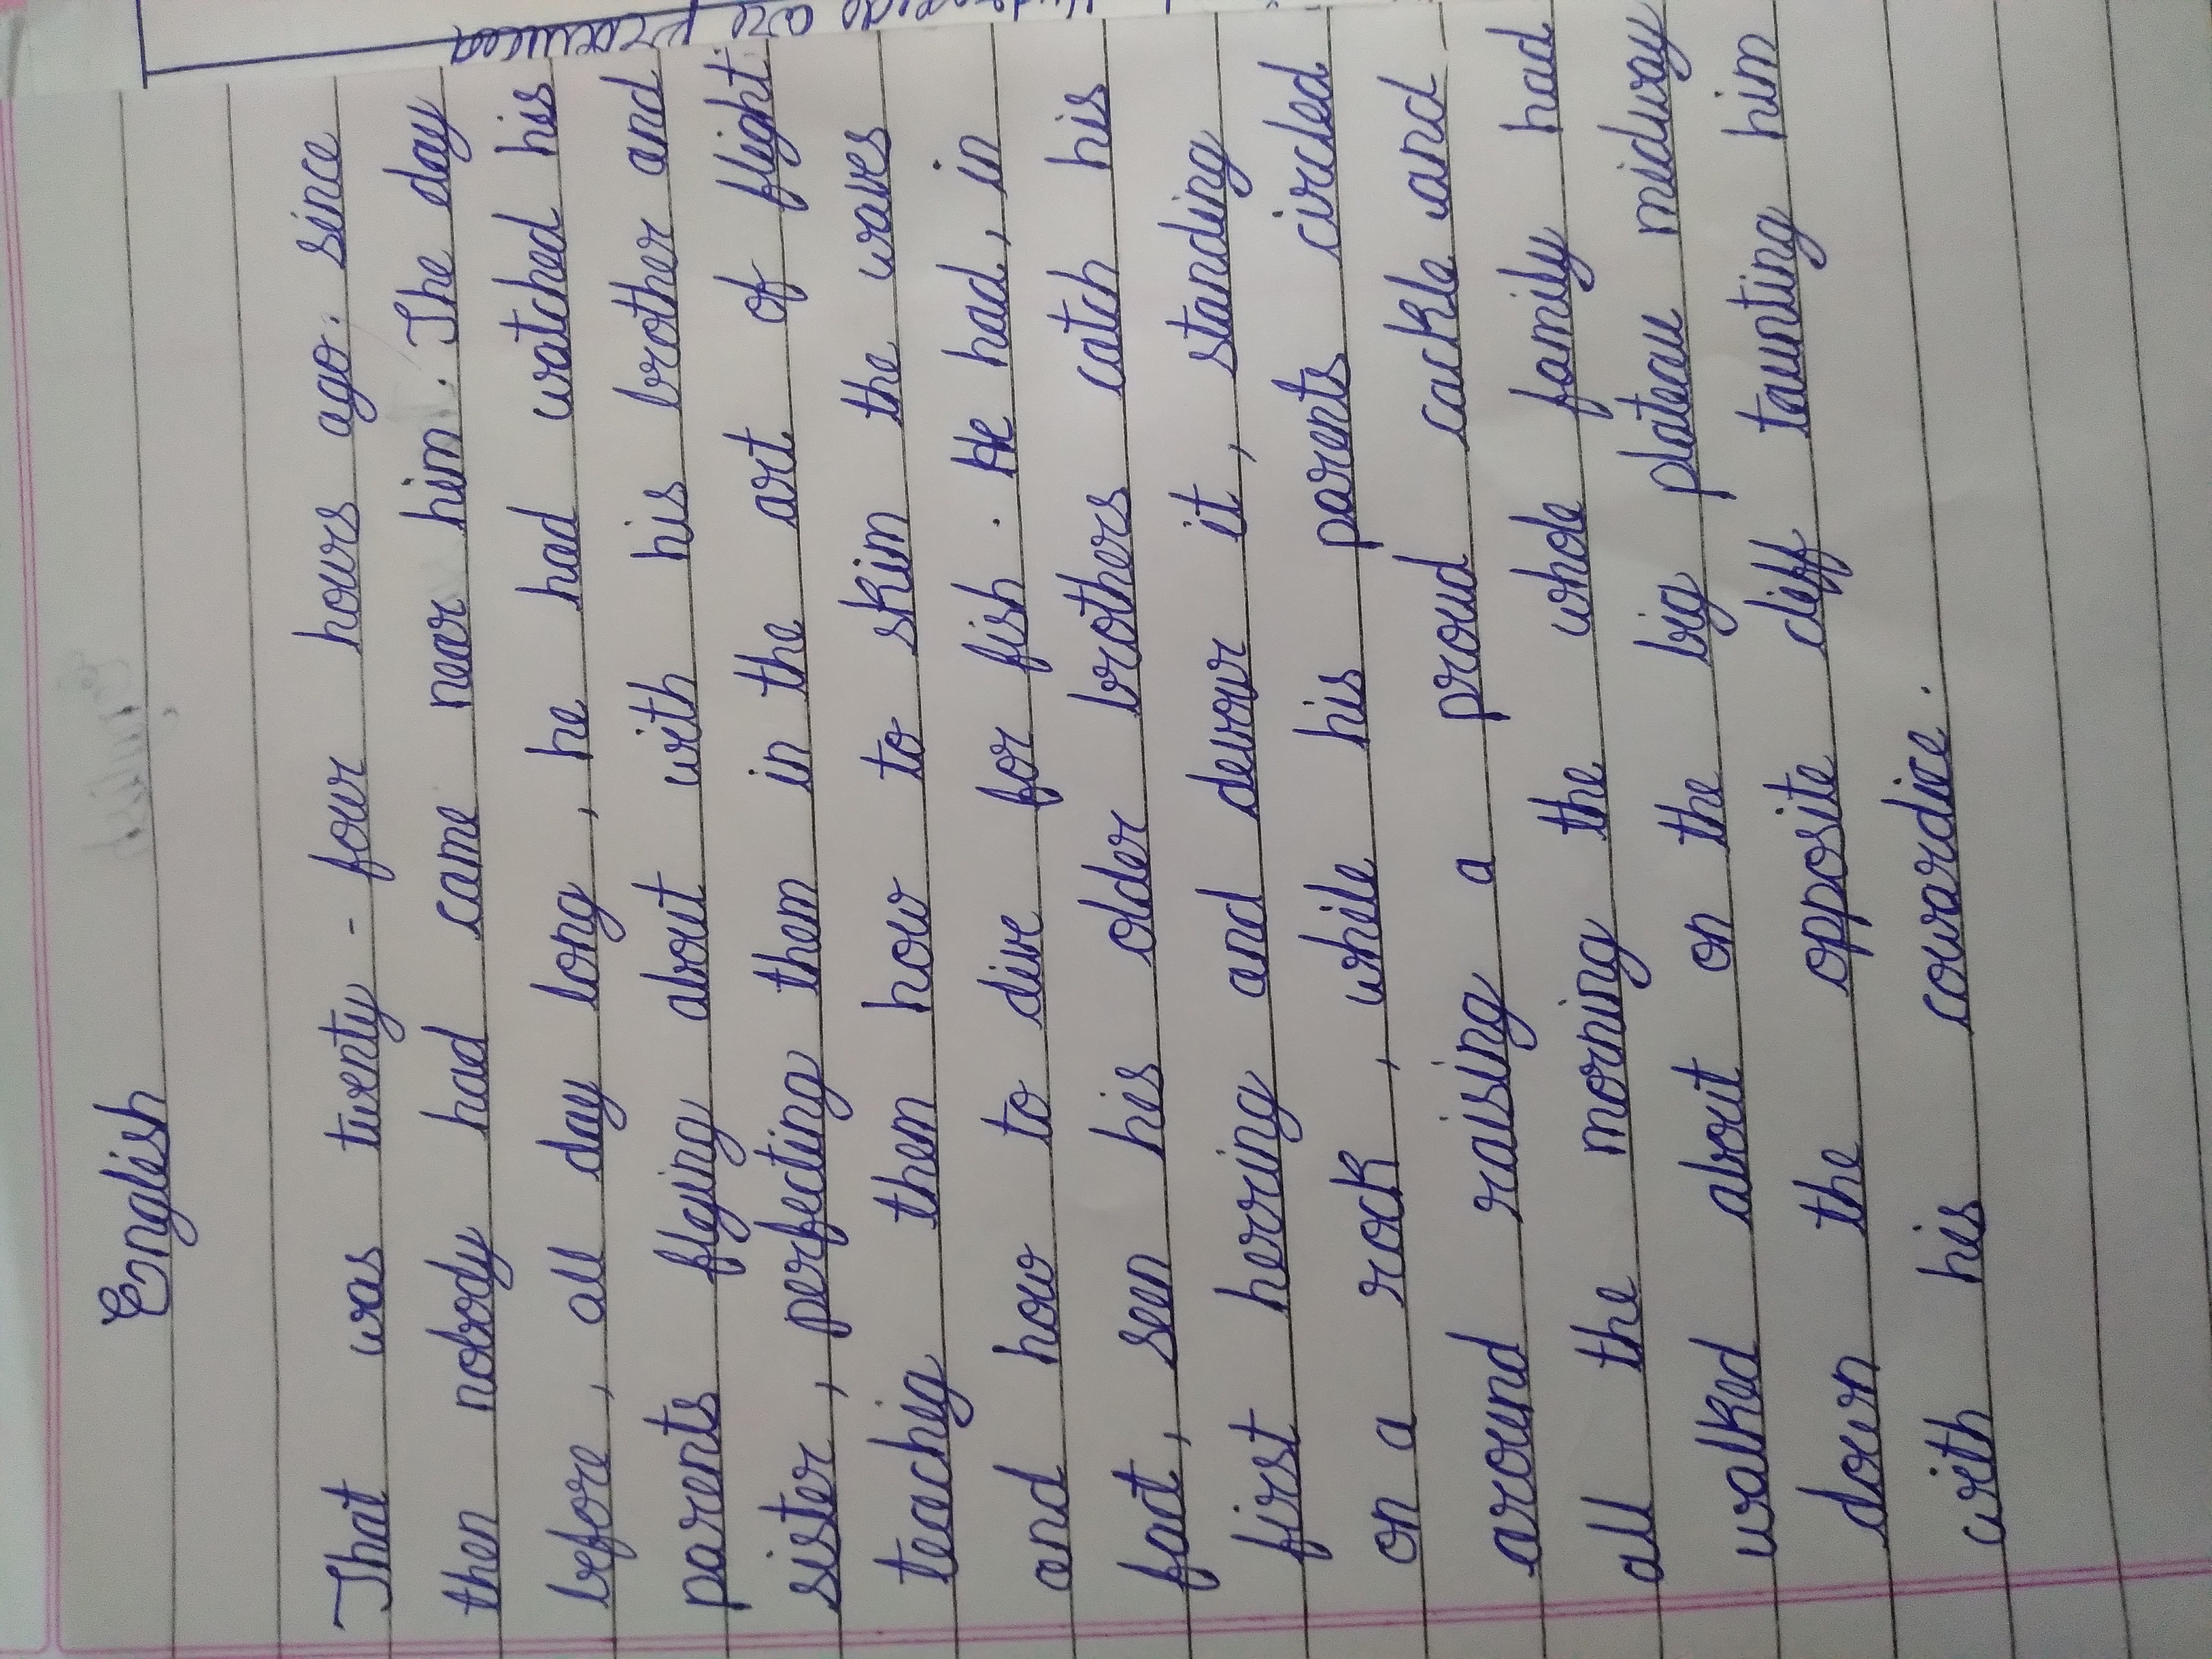 English
That was twenty - four hours ago. since
then nobody had came near him. The day
before, all day long, he had watched his
parents flying about with his brother and
sister, perfecting them in the art of flight.
teachig them how to skim the waves
and how to dive for fish. He had, in
fact, seen his older brothers catch his
first herring and devour it, standing
on a rock, while his parents circled
around raising a proud cackle and
all the morning the whole family had
walked about on the big plateau midway
down the opposite cliff taunting him
with his cowardice.